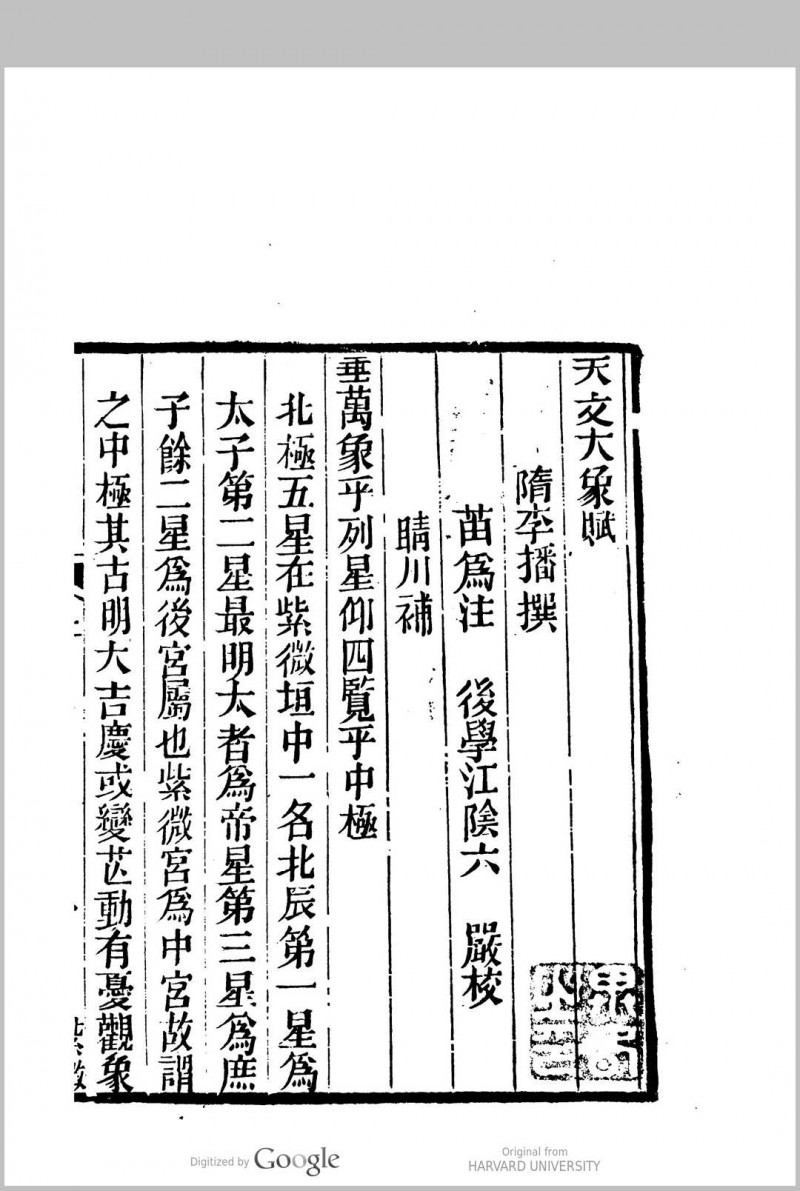 天文大象賦
隋李播撰
苗爲注 後學江陰六 嚴校
睛川補
垂萬象乎列星仰四覽乎中極
北極五星在紫微垣中一名北辰第一星爲
太子第二星最明太者爲帝星第三星爲庶
子餘二星爲後宮屬也紫微宮爲中宮故謂
之中極其古明大吉慶或變芒動有憂觀象
Digitized by Google
Original from
HARVARD UNIVERSITY